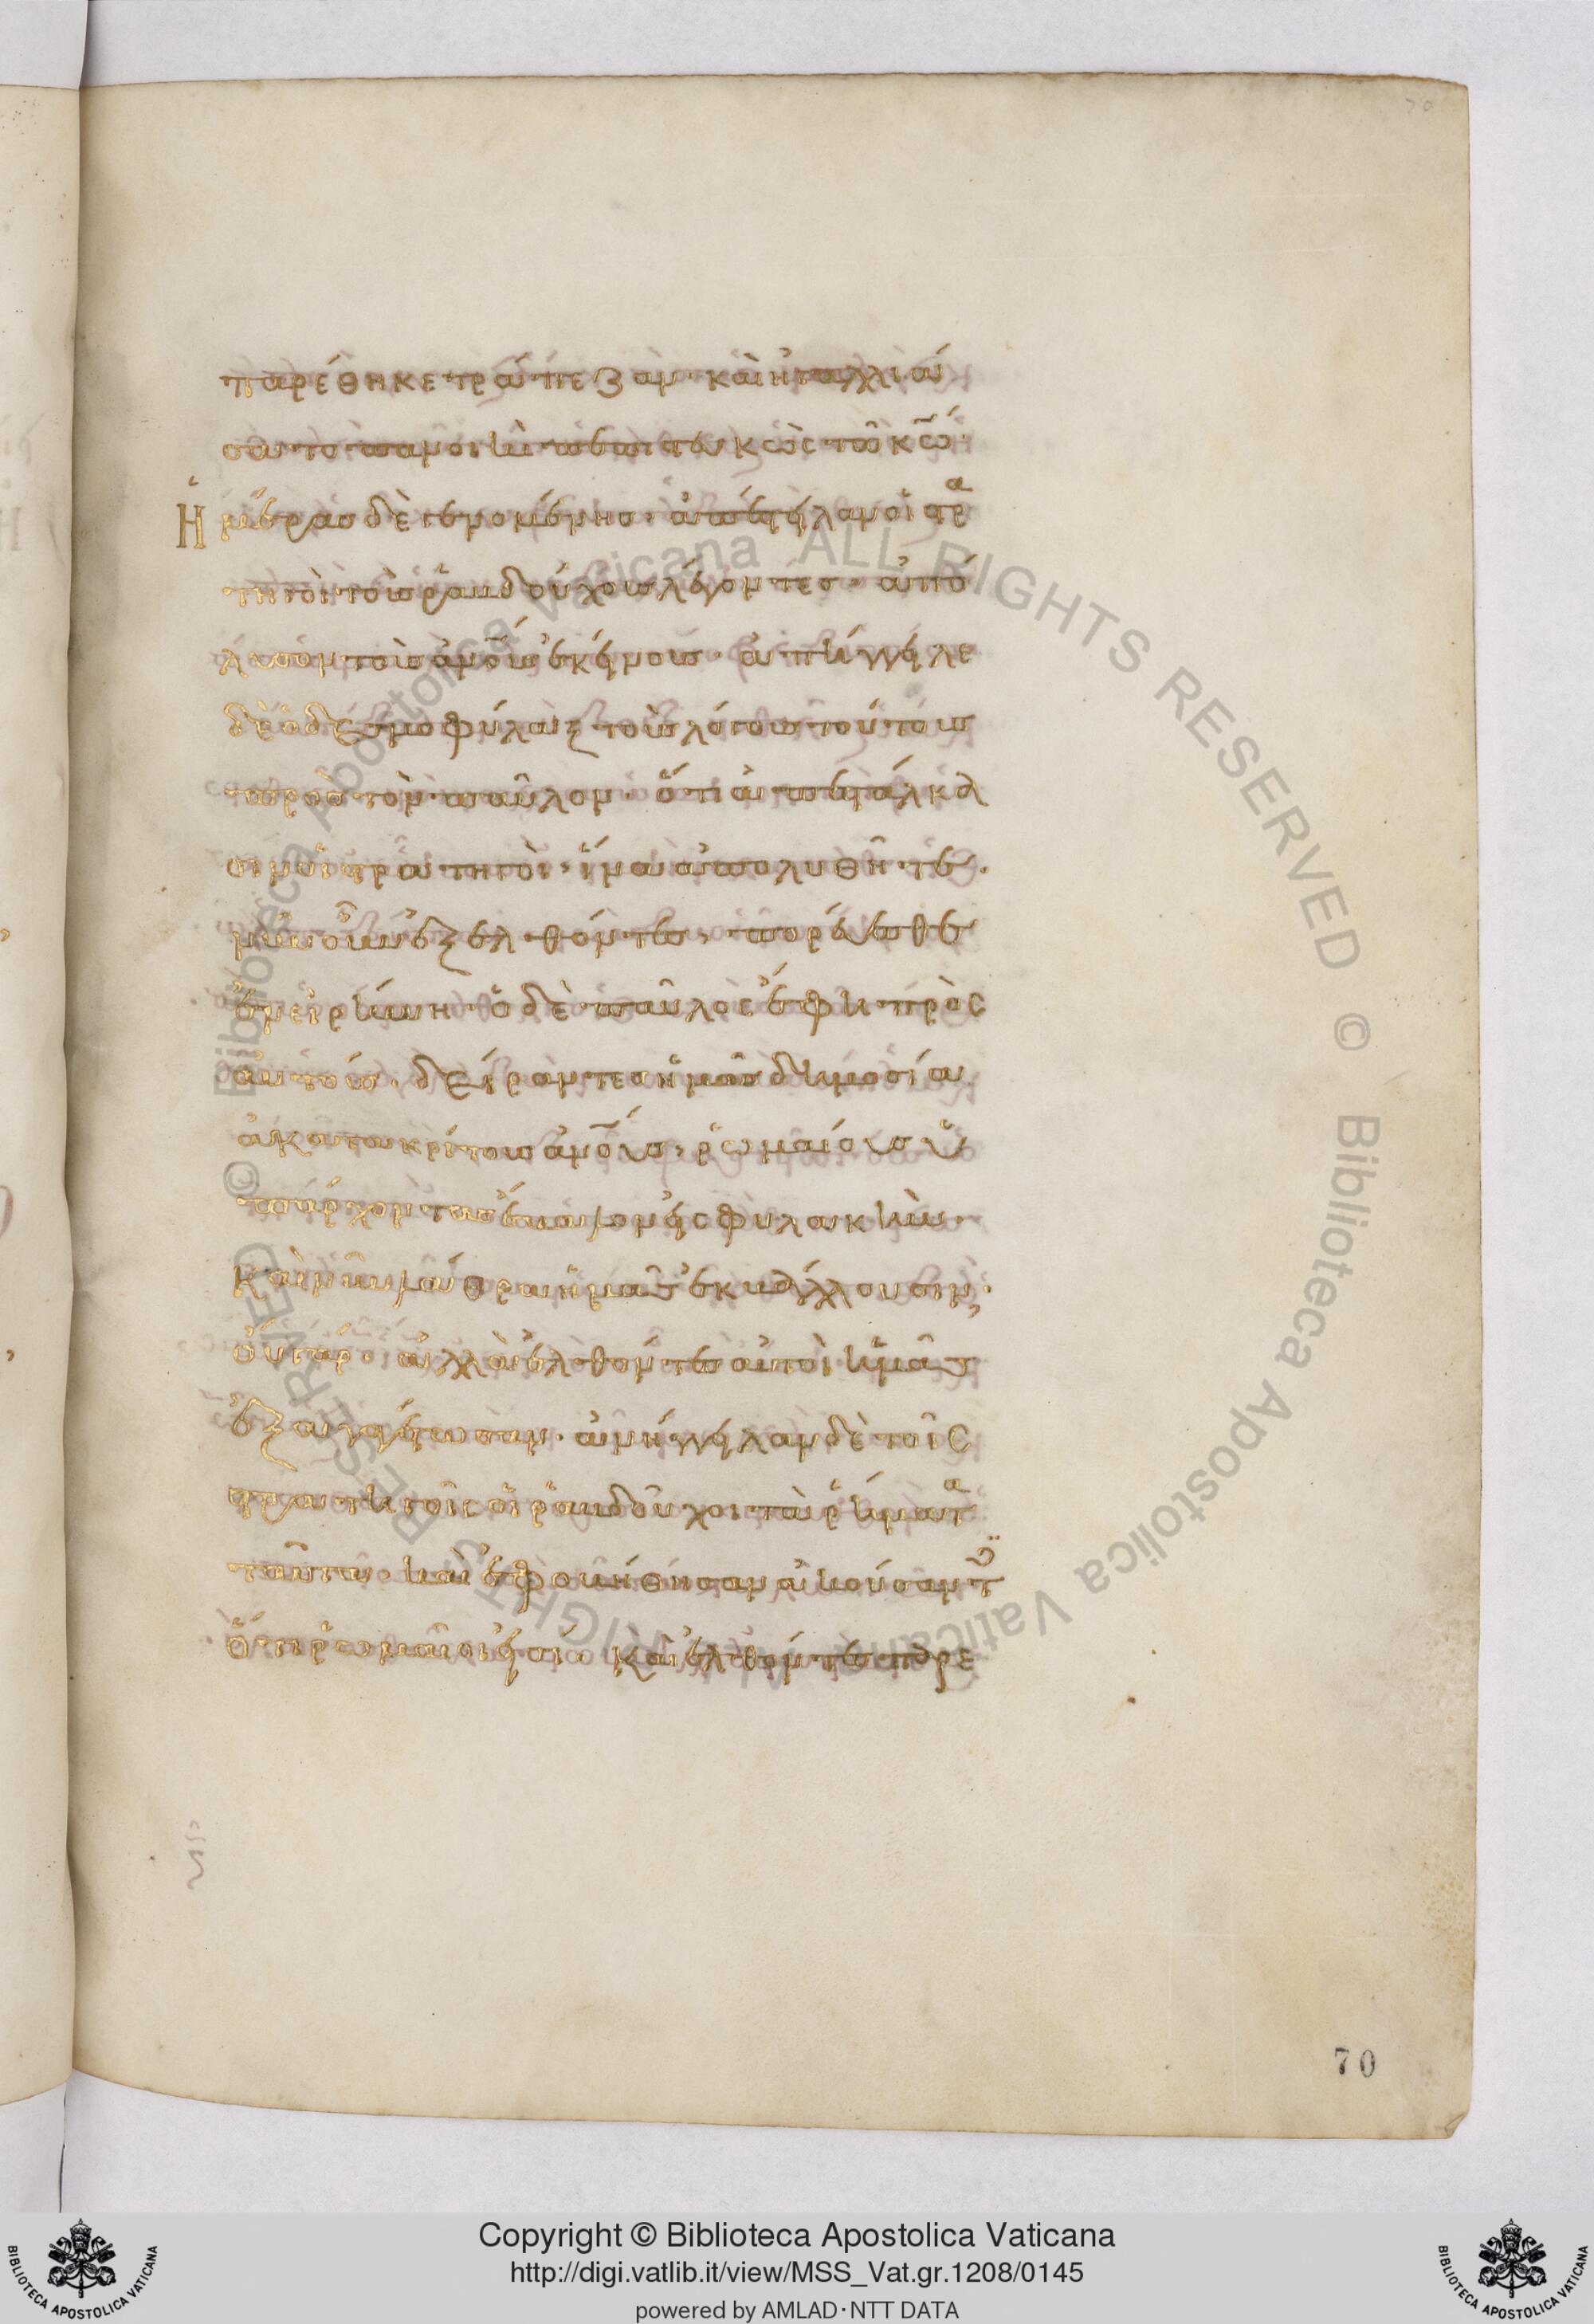 70
παρέθηκε τράπεζαν· καὶ ἠγαλλιά
σατο πανοικὶ πεπιστευκὼς τῶ κῶ·
Ἡμέρας δὲ γενομένης· ἀπέστειλαν οἱ στρα
τηγοὶ τοὺς ῥαβδούχους λέγοντες· ἀπό
λυσον τοὺς ἀνοῦς ἐκείνους· ἀπήγγειλε
δὲ ὁ δεσμοφύλαξ τοὺς λόγους τούτους
πρὸς τὸν παῦλον· ὅτι ἀπεστάλκα
σιν οἱ στρατηγοὶ· ἵνα ἀπολυθῆτε·
νῦν οὖν ἐξελθόντες, πορεύεσθε
ἐν εἰρήνη· ὁ δὲ παῦλος ἔφη πρὸς
αὐτούς· δείραντες ἡμᾶς δημοσία
ἀκατακρίτους ἀνοῦς, ῥωμαίους ὑ
πάρχοντας ἔβαλον εἰς φυλακὴν·
καὶ νῦν λάθρα ἡμᾶς ἐκβάλλουσιν;
οὐ γάρ· ἀλλὰ ἐλθόντες αὐτοὶ ἡμᾶς
ἐξαγαγέτωσαν· ἀνήγγειλαν δὲ τοῖς
στρατηγοῖς οἱ ῥαβδοῦχοι τὰ ῥήματα
ταῦτα· καὶ ἐφοβήθησαν ἀκούσαντες
ὅτι ῥωμαῖοι εἰσί· καὶ ἐλθόντες παρε
70
© Biblioteca Apostolica Vaticana ALL RIGHTS RESERVED © Biblioteca Apostolica Vaticana ALL RIGHTS RESERVED
Copyright © Biblioteca Apostolica Vaticana
http://digi.vatlib.it/view/MSS_Vat.gr.1208/0145
powered by AMLAD·NTT DATA
BIBLIOTECA APOSTOLICA VATICANA
BIBLIOTECA APOSTOLICA VATICANA